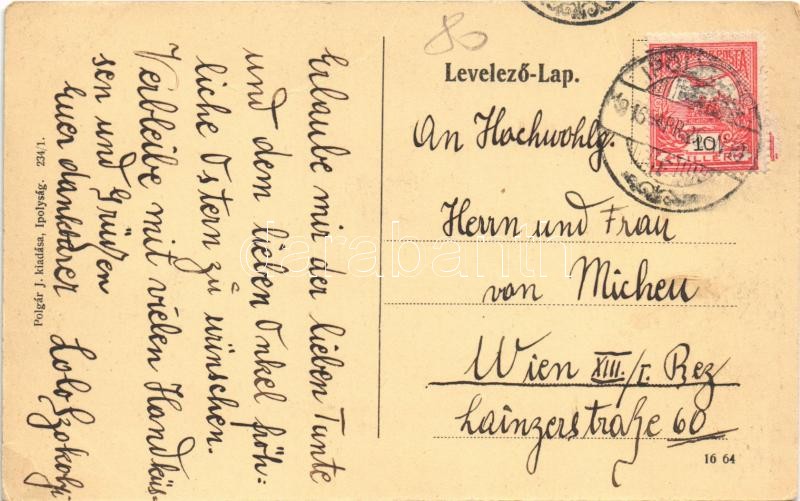 Erlaube mir der lieben Tante
und dem lieben Onkel fröh-
liche Ostern zu wünschen.
Verbleibe mit vielen Handküs-
sen und Grüßen
Euer dankbarer
Lolo Szokolyi
Polgár J. kiadása, Ipolyság. 234/1.
80
Levelező-Lap.
An Hochwohlg.
Herrn und Frau
von Micheu
Wien XIII./1. Bez
Lainzerstraße 60
16 64
POSTA
10
FILLÉR
darabanth